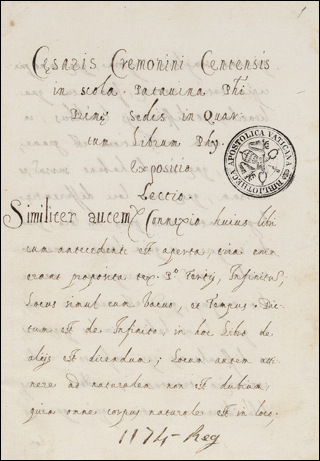 1
Cęsaris Cremonini Centensis
in scola Patauina Phi
Primę Sedis in Quar
tum Librum Phy.
Expositio
Lectio.
BIBLIOTHECA APOSTOLICA VATICANA
Similiter autem Connexio huius libri
cum antecedenti est aperta, tria enim
erant proposita tex. P.º Tertij, Infinitus,
Locus simul cum vacuo, et Tempus. Dic-
tum est de Infinito, in hoc Libro de
alijs est dicendum; Locum autem atti-
nere ad naturalem non est dubium
quia omne corpus naturale est in loco,
1174-Reg